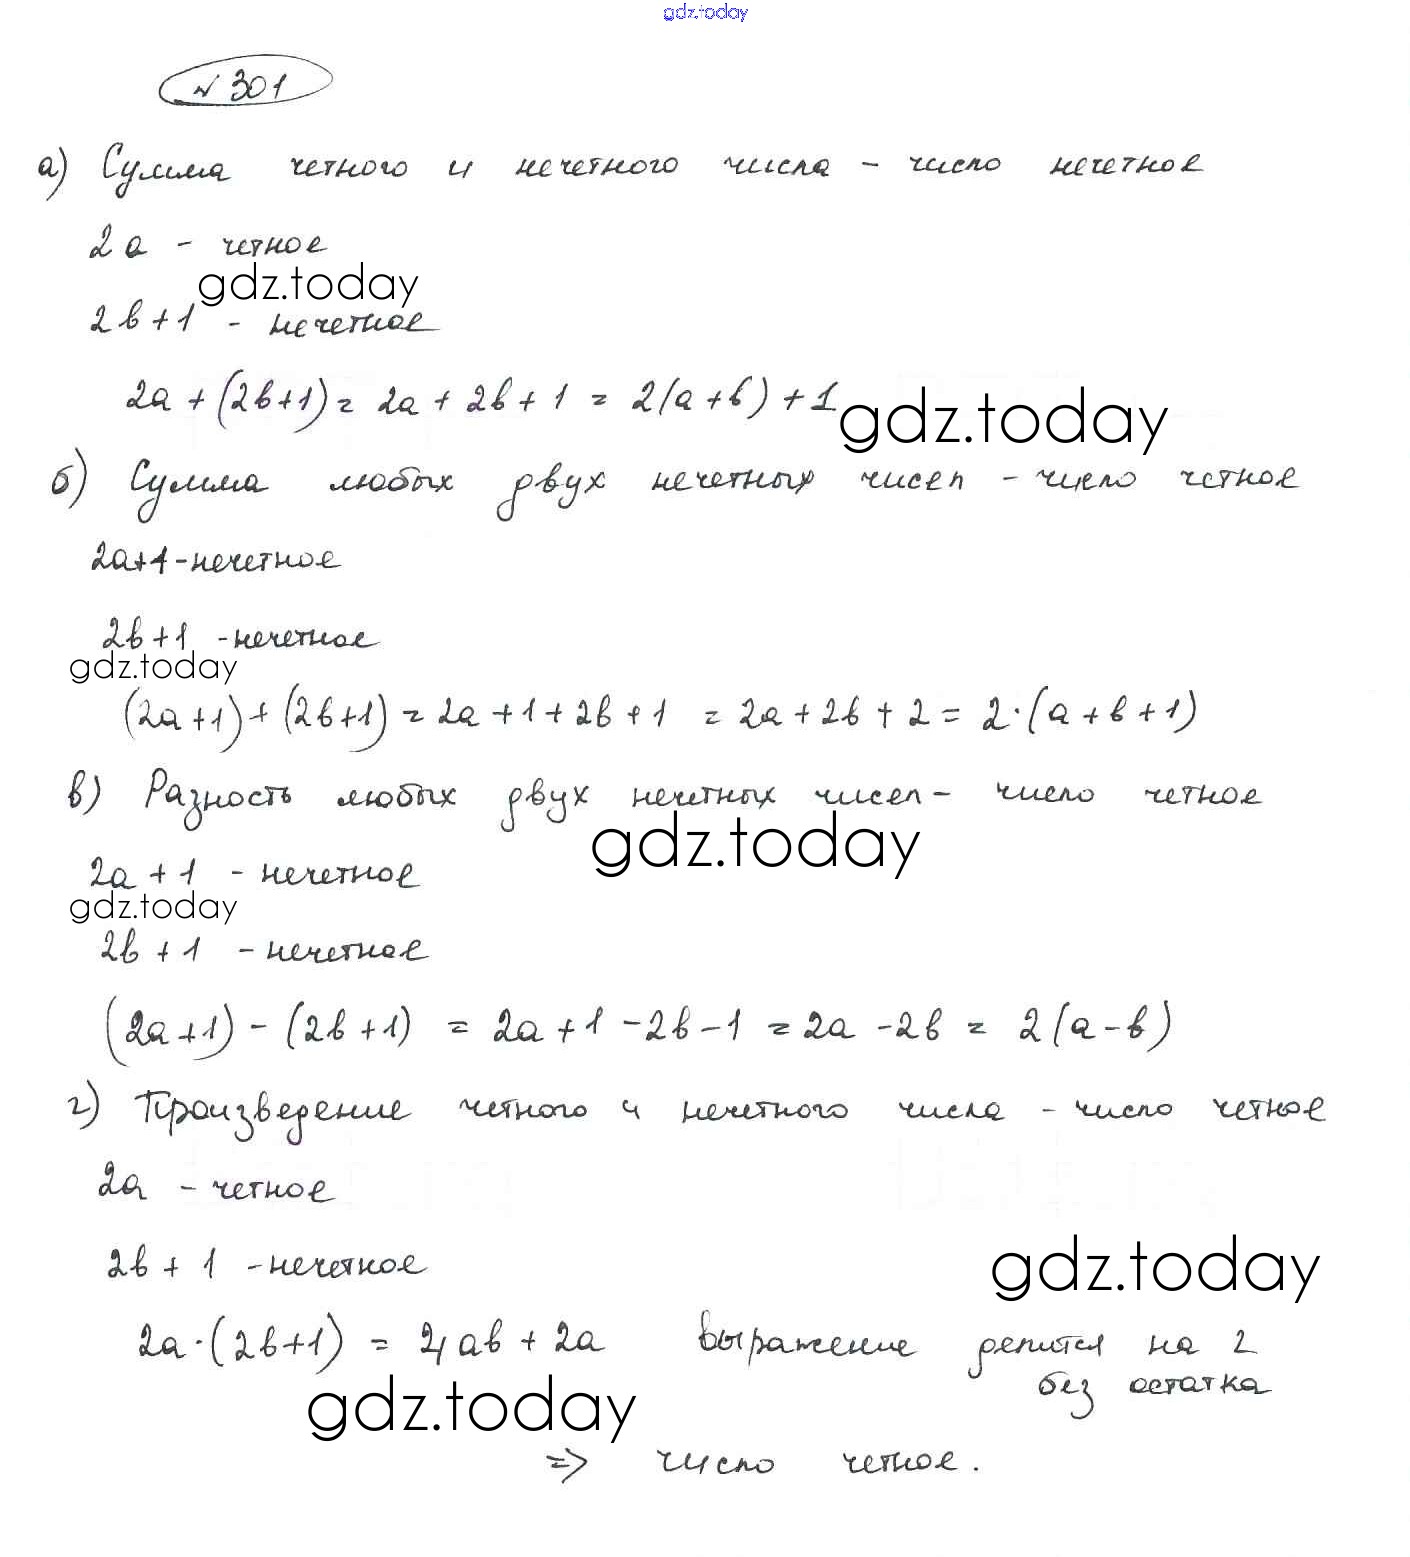 gdz.today
№ 301
а) Сумма четного и нечетного числа – число нечетное
2а – четное
gdz.today
2в+1 – нечетное
2а + (2в+1) = 2а + 2в + 1 = 2(а+в) + 1
gdz.today
б) Сумма любых двух нечетных чисел – число четное
2а+1 - нечетное
2в+1 - нечетное
gdz.today
(2а+1) + (2в+1) = 2а + 1 + 2в + 1 = 2а + 2в + 2 = 2·(а+в+1)
в) Разность любых двух нечетных чисел – число четное
gdz.today
2а + 1 - нечетное
gdz.today
2в + 1 - нечетное
(2а+1) - (2в+1) = 2а+1-2в-1 = 2а-2в = 2(а-в)
г) Произведение четного и нечетного числа – число четное
2а – четное
gdz.today
2в + 1 - нечетное
2а·(2в+1) = 4ав + 2а выражение делится на 2
без остатка
gdz.today
=> число четное.